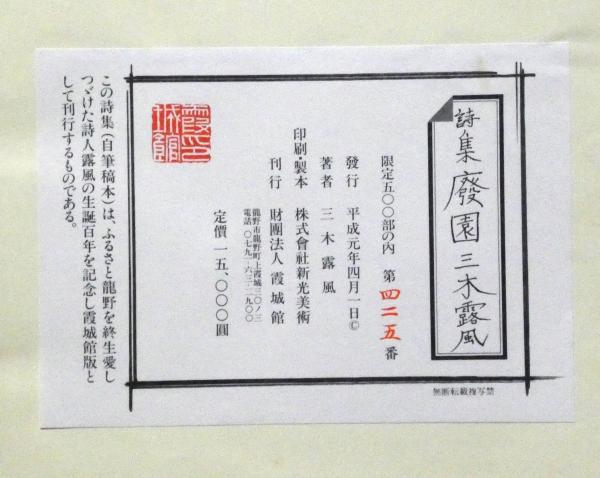 詩集 廢園 三木露風
限定五〇〇部の内 第四二五番
發行 平成元年四月一日©
著者 三木露風
印刷・製本 株式會社新光美術
刊行 財團法人霞城館
龍野市龍野町上霞城三〇ノ三
電話 〇七九一-六三-二九〇〇
定價 一五、〇〇〇圓
霞城館印
この詩集(自筆稿本)は、ふるさと龍野を終生愛し
つゞけた詩人露風の生誕百年を記念し霞城館版と
して刊行するものである。
無断転載複写禁